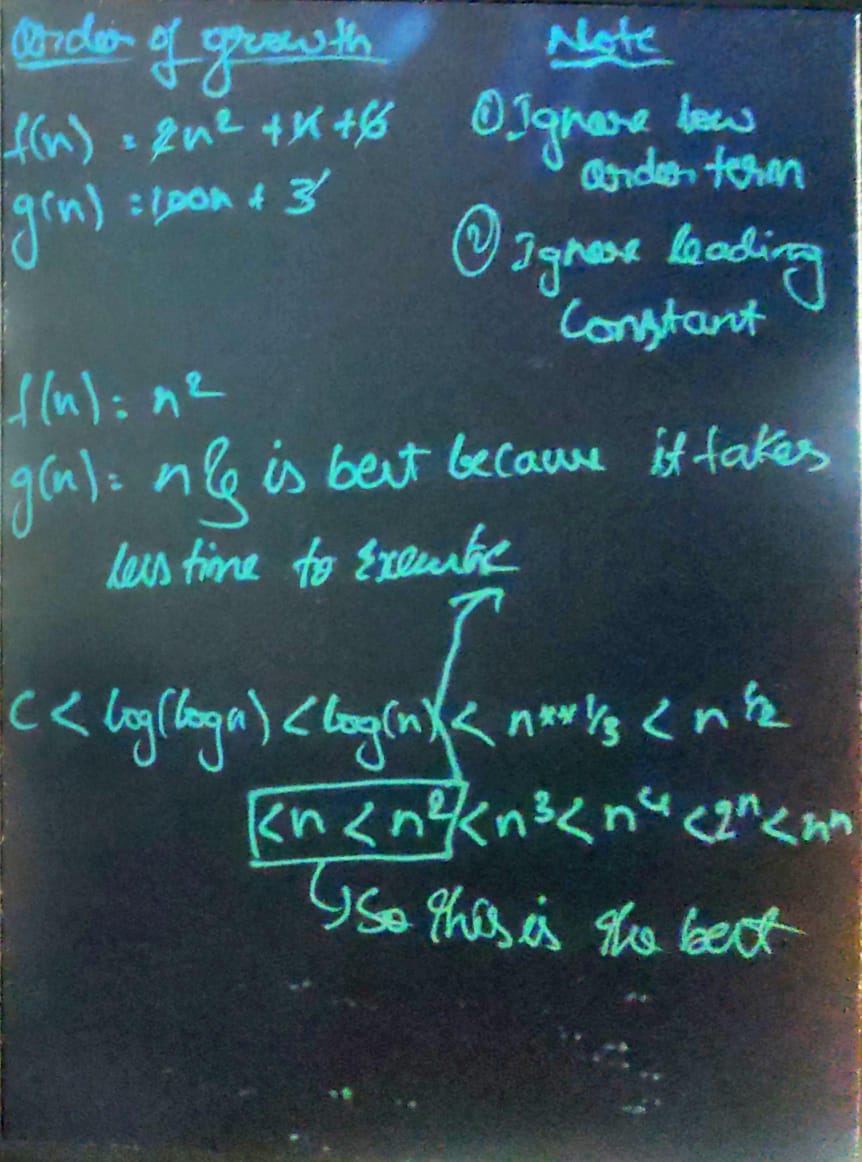 Order of growth
Note
f(n) = 2n² + n + 6
g(n) = 100n + 3
① Ignore low
order term
② Ignore leading
Constant
f(n) = n²
g(n) = n is best because it takes
less time to Execute
C < log(logn) < log(n) < n**1/3 < n^1/2
<n < n² <n³ < n⁴ <2ⁿ < nⁿ
So this is the best